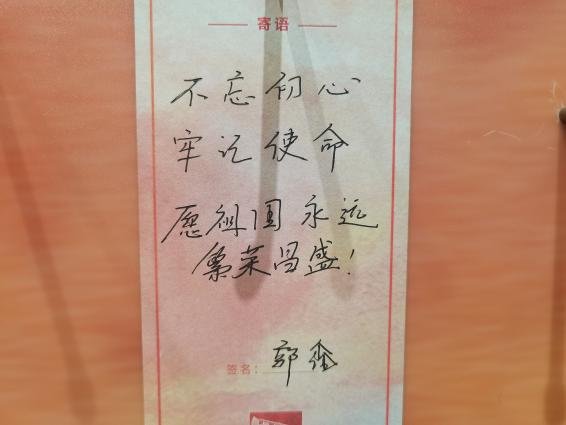 寄语
不忘初心
牢记使命
愿祖国永远
繁荣昌盛！
签名：郭